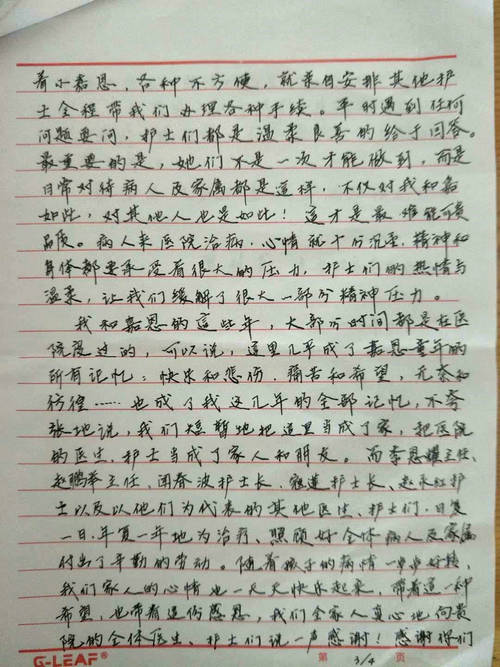 着小嘉恩,各种不方便,就亲自安排其他护
士全程带我们办理各种手续。平时遇到任何
问题要问,护士们都是温柔良善的给予回答。
最重要的是,她们不是一次才能做到,而是
日常对待病人及家属都是这样,不仅对我和嘉
如此,对其他人也是如此!这才是最难能可贵
品质。病人来医院治病,心情就十分沉重,精神和
身体都要承受着很大的压力,护士们的热情与
温柔,让我们缓解了很大一部分精神压力。
我和嘉恩的这些年,大部分时间都是在医
院渡过的,可以说,这里几乎成了嘉恩童年的
所有记忆:快乐和悲伤,痛苦和希望,无奈和
彷徨……也成了我这几年的全部记忆,不夸
张地说,我们短暂地把这里当成了家,把医院
的医生、护士当成了家人和朋友。而李恩耀主任、
赵鹏举主任、闰春波护士长、寇莲护士长、赵永红护
士以及以他们为代表的其他医生、护士们,日复
一日,年复一年地为治疗、照顾好全体病人及家属
付出了辛勤的劳动。随着孩子的病情一点点好转,
我们家人的心情也一天天快乐起来,带着这一种
希望,也带着这份感恩,我们全家人真心地向贵
院的全体医生、护士们说一声感谢!感谢你们
G-LEAF® 第 3/4 页